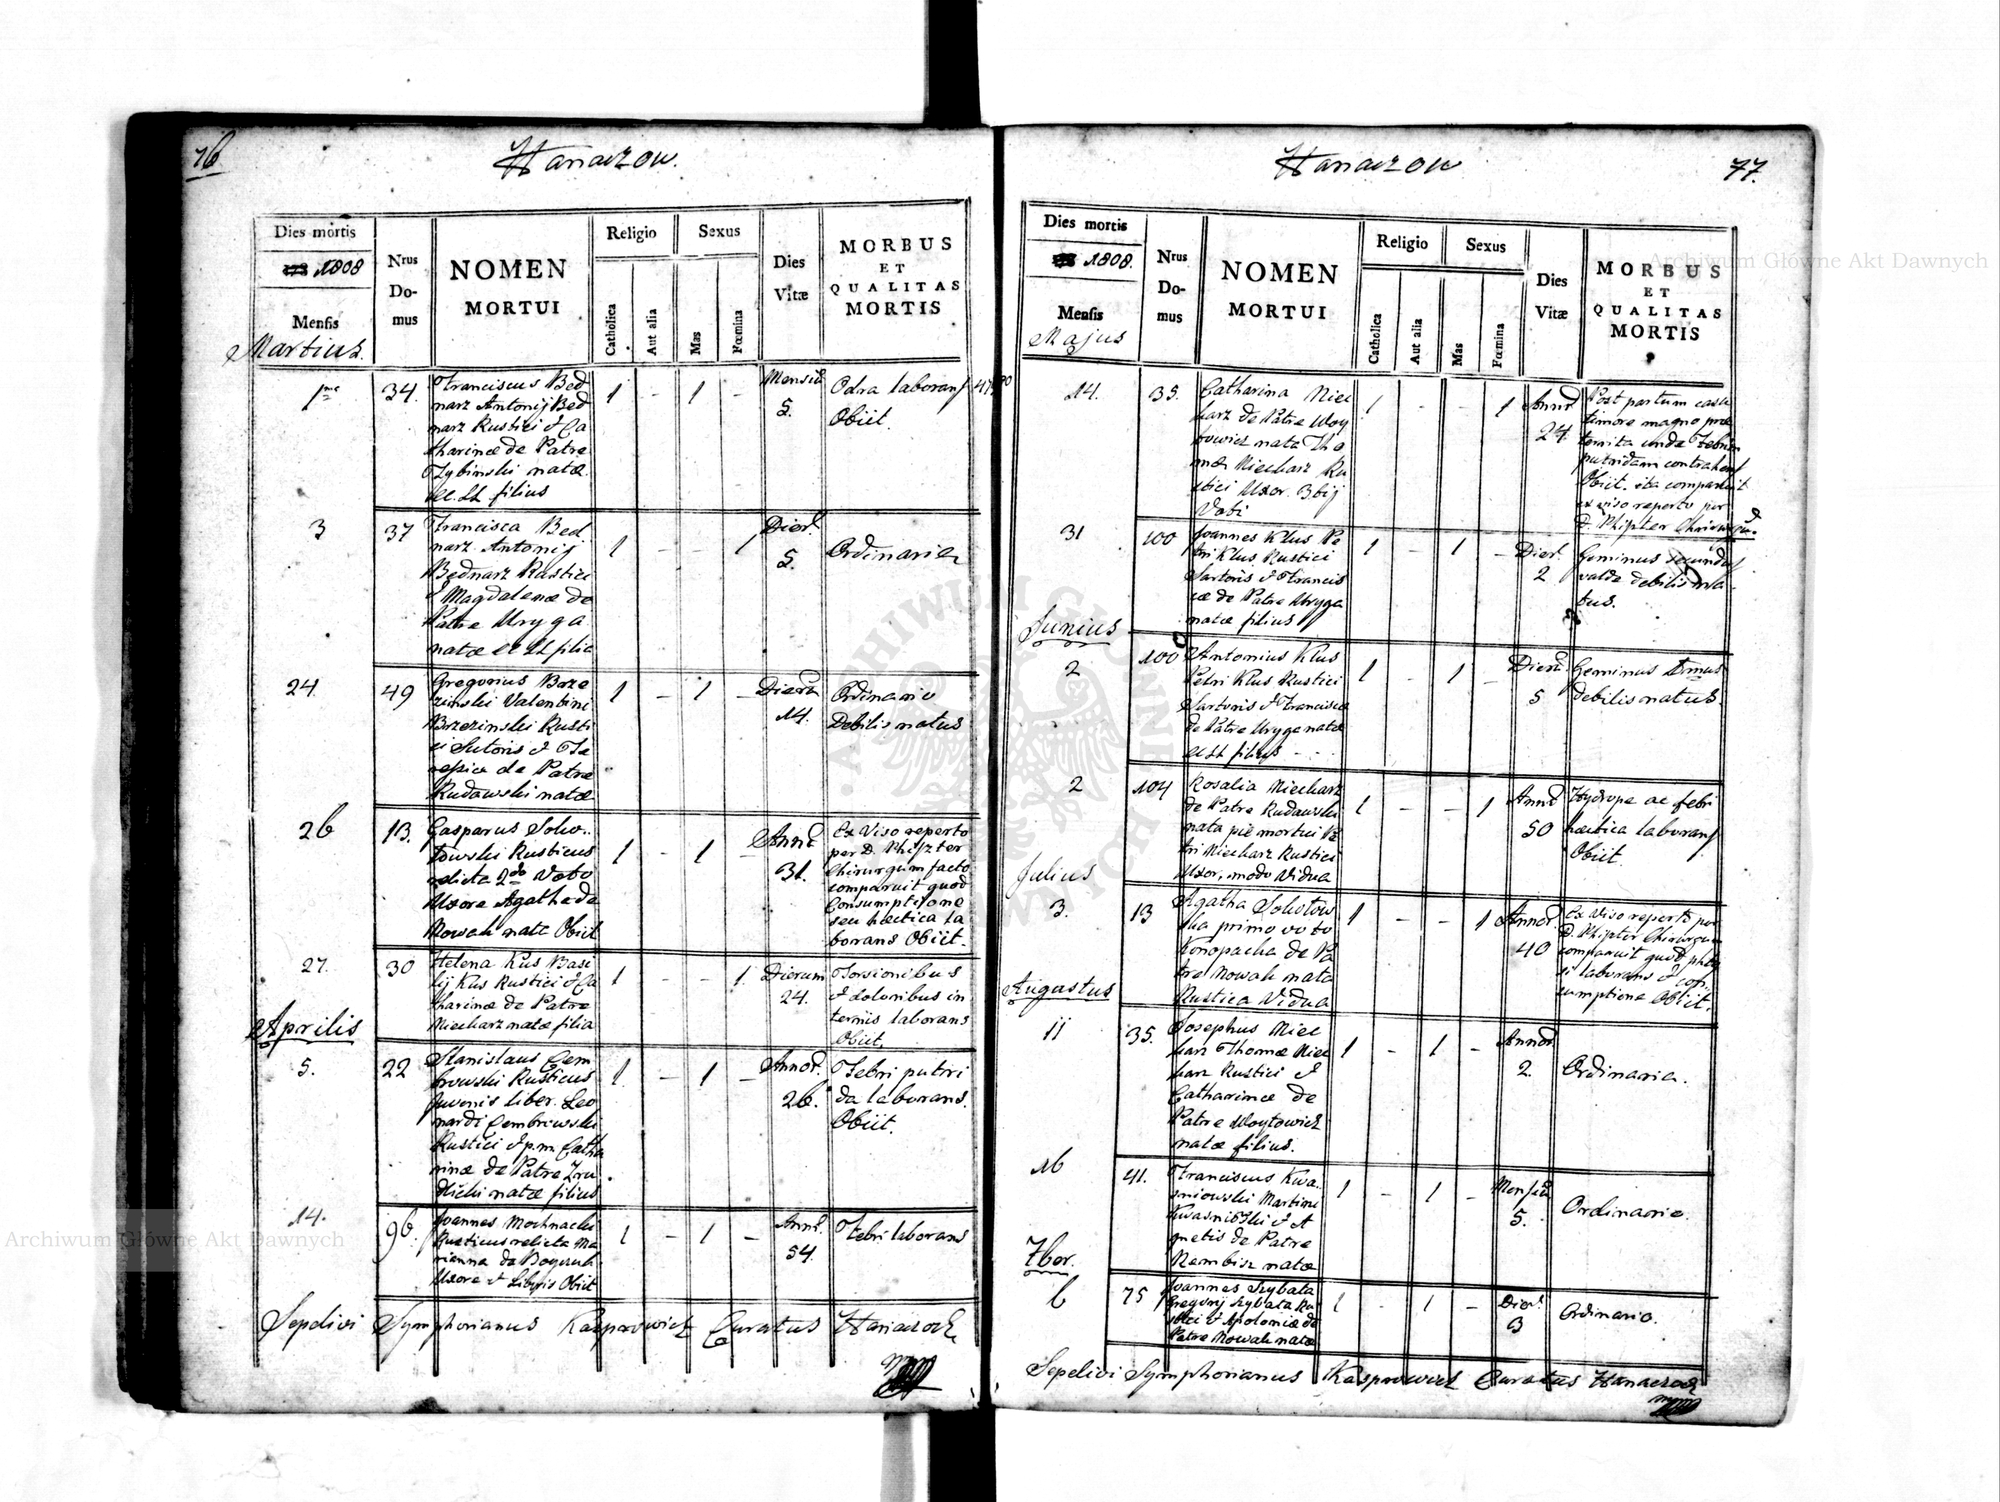 76
Hanaczow.
Dies mortis
1808
Mensis
Martius.
Nrus
Do-
mus
NOMEN
MORTUI
Religio
Catholica
Aut alia
Sexus
Mas
Fœmina
Dies
Vitæ
MORBUS
ET
QUALITAS
MORTIS
34.
Franciscus Bed
narz Antonij Bed
narz Rustici et Ca
tharinæ de Patre
natæ
filius
1
-
1
-
5.
Odra laborans
Obiit.
3
37
Francisca Bed
narz Antonij
Bednarz Rustici
et Magdalenæ de
Patre Uryga
natæ et LL filia
1
-
-
1
5.
Ordinaria
24.
49
Gregorius Brze
zinski Valentini
Brzezinski Rusti
ci Sutoris et The
de Patre
Rudawski natæ
1
-
1
-
14.
Ordinario
Debilis natus
26
13.
Gasparus Soko..
towski Rusticus
relicta 2do Voto
Uxore Agatha de
Nowak nata Obiit
1
-
1
-
31.
Ex Viso reperto
per D.
Chirurgum facto
comparuit quod
Consumptione
seu hectica la
borans Obiit.
27.
30
Helena Kus Basi
lij Kus Rustici et Ca
tharinæ de Patre
Niecharz natæ filia
1
-
-
1.
Dierum
24.
Torsionibus
et doloribus in
ternis laborans
Obiit.
Aprilis
5.
22
Stanislaus Cem
browski Rusticus
Juvenis liber. Leo
nardi
Rustici et p.m. Catha
rinæ de Patre
natæ filius
1
-
1
-
26.
Febri putri
da laborans.
Obiit.
14.
96.
Joannes Mochnacki
Rusticus relicta Ma
rianna de
Uxore et Liberis Obiit
1
-
1
-
54.
Febri laborans
Sepelivi Symphorianus Kasprowicz Curatus
Hanaczow
77.
Dies mortis
1808.
Mensis
Majus
Nrus
Do-
mus
NOMEN
MORTUI
Religio
Catholica
Aut alia
Sexus
Mas
Fœmina
Dies
Vitæ
MORBUS
ET
QUALITAS
MORTIS
14.
35.
Catharina Niec
harz de Patre Woy
towicz nata Tho
mæ Niecharz Ru
stici Uxor. 3tij
Voti
1
-
-
1
24.
Post partum casu
timore magno præ
territa unde Febrim
putridam contrahens
Obiit. ita comparuit
ex viso reperto per
31
100
Joannes Klus Pe
tri Klus Rustici
Sartoris et Francis
cæ de Patre Uryga
natæ filius
1
-
1
-
2
Geminus secundus
valde debilis na
tus.
Junius
2
100
Antonius Klus
Petri Klus Rustici
Sartoris et Francisca
de Patre Uryga natæ
et LL filius
1
-
1
-
5
Geminus
debilis natus.
2
104
Rosalia Niecharz
de Patre Rudawski
nata pie mortui Pe
tri Niecharz Rustici
Uxor, modo Vidua
1
-
-
1
50
Hydrope ac febri
hectica laborans
Obiit.
Julius
3.
13
Agatha Sokotow
ska primo voto
Konopacka de Pa
tre Nowak nata
Rustica Vidua
1
-
-
1
40
Ex Viso reperto per
comparuit quod
laborans et con
sumptione Obiit.
Augustus
11
35.
Josephus Niec
harz Thomæ Niec
harz Rustici et
Catharinæ de
Patre Woytowicz
natæ filius.
1
-
1
-
2.
Ordinaria.
16
41.
Franciscus Kwa.
sniowski Martini
et A
gnetis de Patre
natæ
1
-
1
-
5.
Ordinario.
7bor.
6
75
Joannes Szybata
Gregorij Szybata Ru
stici et Apoloniæ de
Patre Nowak natæ
1
-
1
-
3
Ordinario.
Sepelivi Symphorianus Kasprowicz Curatus
Archiwum Główne Akt Dawnych
Archiwum Główne Akt Dawnych